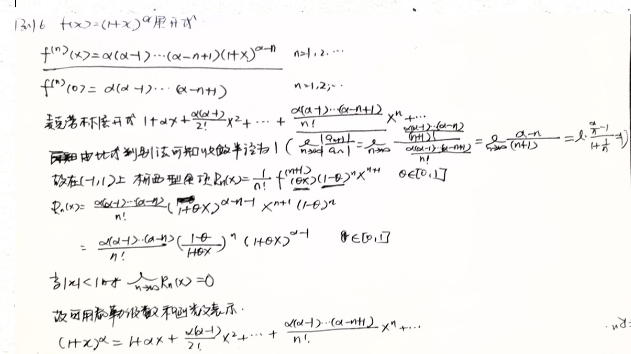 例16 f(x)=(1+x)^α展开式
f^(n)(x)=α(α-1)…(α-n+1)(1+x)^(α-n) n=1,2…
f^(n)(0)=α(α-1)…(α-n+1) n=1,2,…
麦克劳林展开式 1+αx+α(α-1)/2! x²+…+α(α-1)…(α-n+1)/n! x^n+…
由比式判别法可知收敛半径为1 (lim n→∞ |a_{n+1}|/|a_n| = lim n→∞ [α(α-1)…(α-n)/(n+1)!]/[α(α-1)…(α-n+1)/n!] = lim n→∞ (α-n)/(n+1) = (α/n-1)/(1+1/n) =1)
故在(-1,1)上 柯西型余项R_n(x)=1/n! f^(n+1)(θx)(1-θ)^n x^(n+1) θ∈[0,1]
R_n(x)=α(α-1)…(α-n)/n! (1+θx)^(α-n-1) x^(n+1) (1-θ)^n
=α(α-1)…(α-n)/n! ((1-θ)/(1+θx))^n (1+θx)^(α-1) θ∈[0,1]
当|x|<1时 lim n→∞ R_n(x)=0
故可用泰勒级数表示.
(1+x)^α=1+αx+α(α-1)/2! x²+…+α(α-1)…(α-n+1)/n! x^n+…